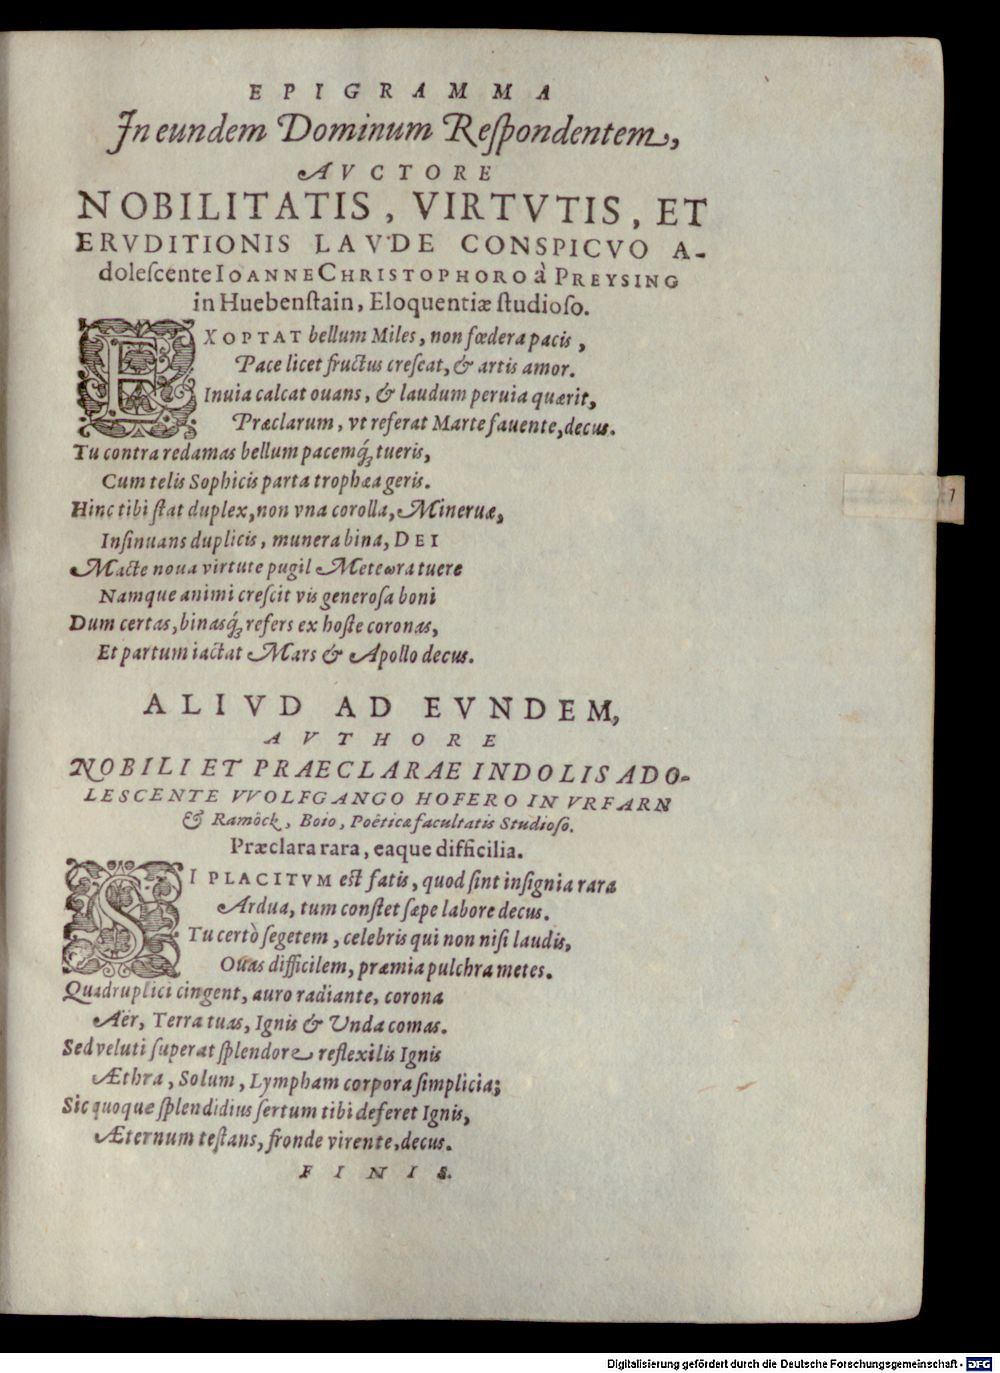 EPIGRAMMA
In eundem Dominum Reſpondentem,
AVCTORE
NOBILITATIS, VIRTVTIS, ET
ERVDITIONIS LAVDE CONSPICVO A-
doleſcente IOANNE CHRISTOPHORO à PREYSING
in Huebenſtain, Eloquentiæ ſtudioſo.
EXOPTAT bellum Miles, non fœdera pacis,
Pace licet fructus creſcat, & artis amor.
Inuia calcat ouans, & laudum peruia quærit,
Præclarum, vt referat Marte fauente, decus.
Tu contra redamas bellum pacemq́ꝫ tueris,
Cum telis Sophicis parta trophæa geris.
Hinc tibi ſtat duplex, non vna corolla, Mineruæ,
Inſinuans duplicis, munera bina, DEI
Macte noua virtute pugil Meteωra tuere
Namque animi creſcit vis generoſa boni
Dum certas, binasq́ꝫ refers ex hoſte coronas,
Et partum iactat Mars & Apollo decus.
ALIVD AD EVNDEM,
AVTHORE
NOBILI ET PRAECLARAE INDOLIS ADO-
LESCENTE VVOLFGANGO HOFERO IN VRFARN
& Ramöck, Boio, Poëticæ facultatis Studioſo.
Præclara rara, eaque difficilia.
SI PLACITVM eſt fatis, quod ſint inſignia rara
Ardua, tum conſtet ſæpe labore decus.
Tu certò ſegetem, celebris qui non niſi laudis,
Ouas difficilem, præmia pulchra metes.
Quadruplici cingent, auro radiante, corona
Aër, Terra tuas, Ignis & Vnda comas.
Sed veluti ſuperat ſplendore reflexilis Ignis
Æthra, Solum, Lympham corpora ſimplicia;
Sic quoque ſplendidius ſertum tibi deferet Ignis,
Æternum teſtans, fronde virente, decus.
FINIS.
7
Digitalisierung gefördert durch die Deutsche Forschungsgemeinschaft - DFG